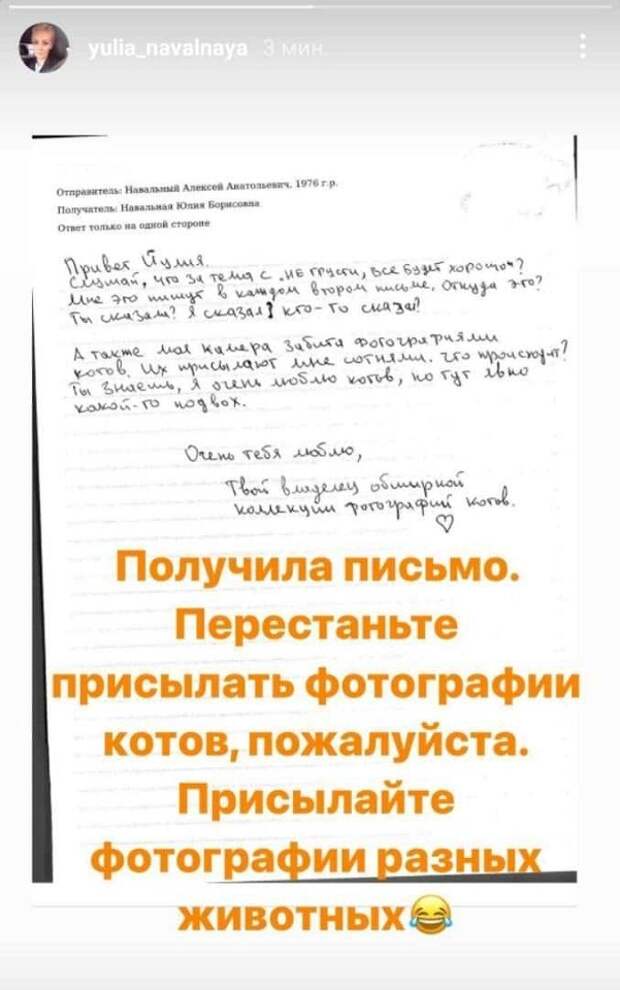 yulia_navalnaya 3 мин.
Отправитель: Навальный Алексей Анатольевич, 1976 г.р.
Получатель: Навальная Юлия Борисовна
Ответ только на одной стороне
Привет Йулия.
Слушай, что за тема с „НЕ грусти, все будет хорошо"?
Мне это пишут в каждом втором письме, Откуда это?
Ты сказала? Я сказал? кто-то сказал?
А также моя камера забита фотографиями
котов. Их присылают мне сотнями. что происходит?
Ты знаешь, я очень люблю котов, но тут явно
какой-то подвох.
Очень тебя люблю,
Твой владелец обширной
коллекции фотографий котов.
♡
Получила письмо.
Перестаньте
присылать фотографии
котов, пожалуйста.
Присылайте
фотографии разных
животных😂